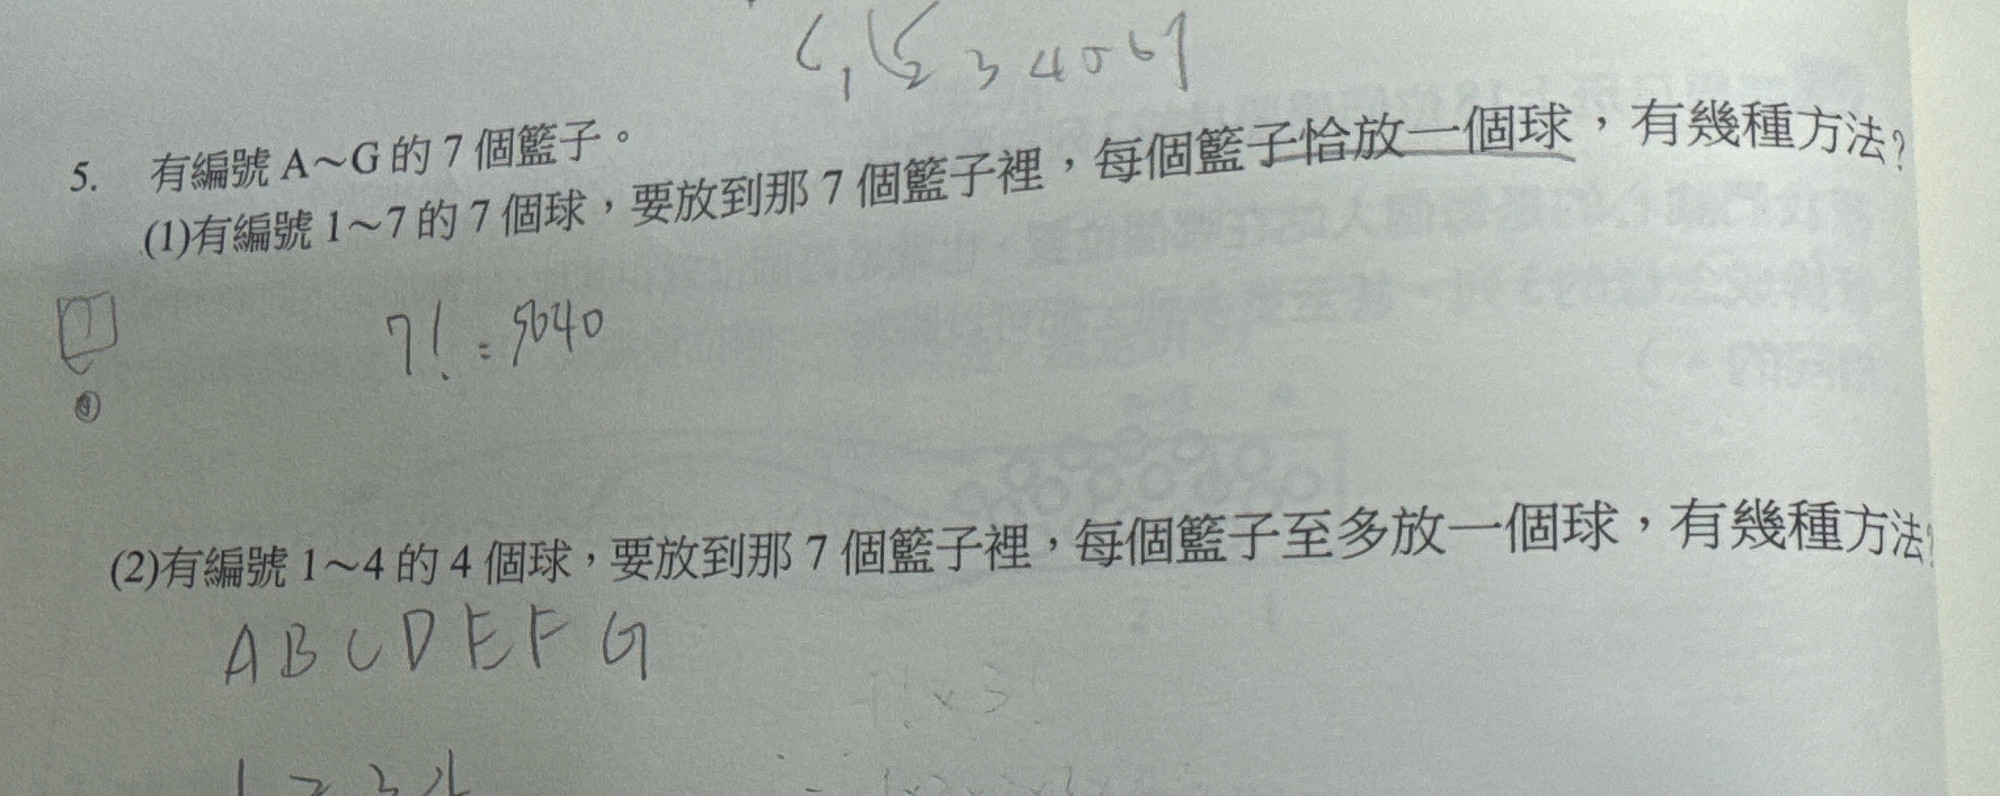 3 4 5 6 7
5. 有編號 A～G 的 7 個籃子。
(1)有編號 1～7 的 7 個球，要放到那 7 個籃子裡，每個籃子恰放一個球，有幾種方法？
7! = 5040
(2)有編號 1～4 的 4 個球，要放到那 7 個籃子裡，每個籃子至多放一個球，有幾種方法？
A B C D E F G
7! × 3!
1 2 3 4